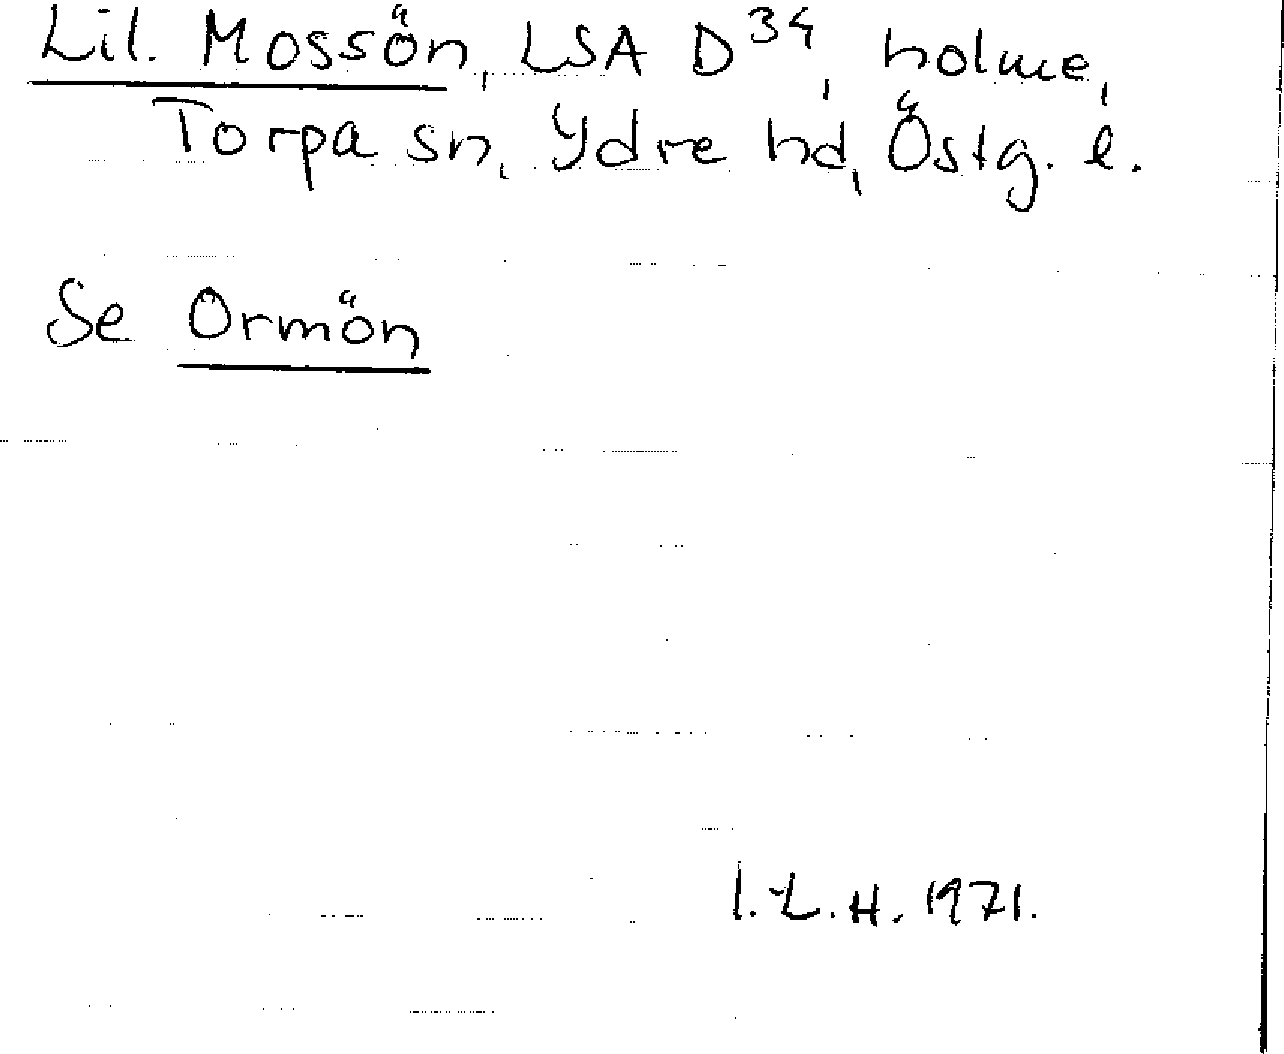 Lil. Mossön, LSA D34, holme,
Torpa sn, Ydre hd, Östg. l.
Se Ormön
I.L.H. 1971.